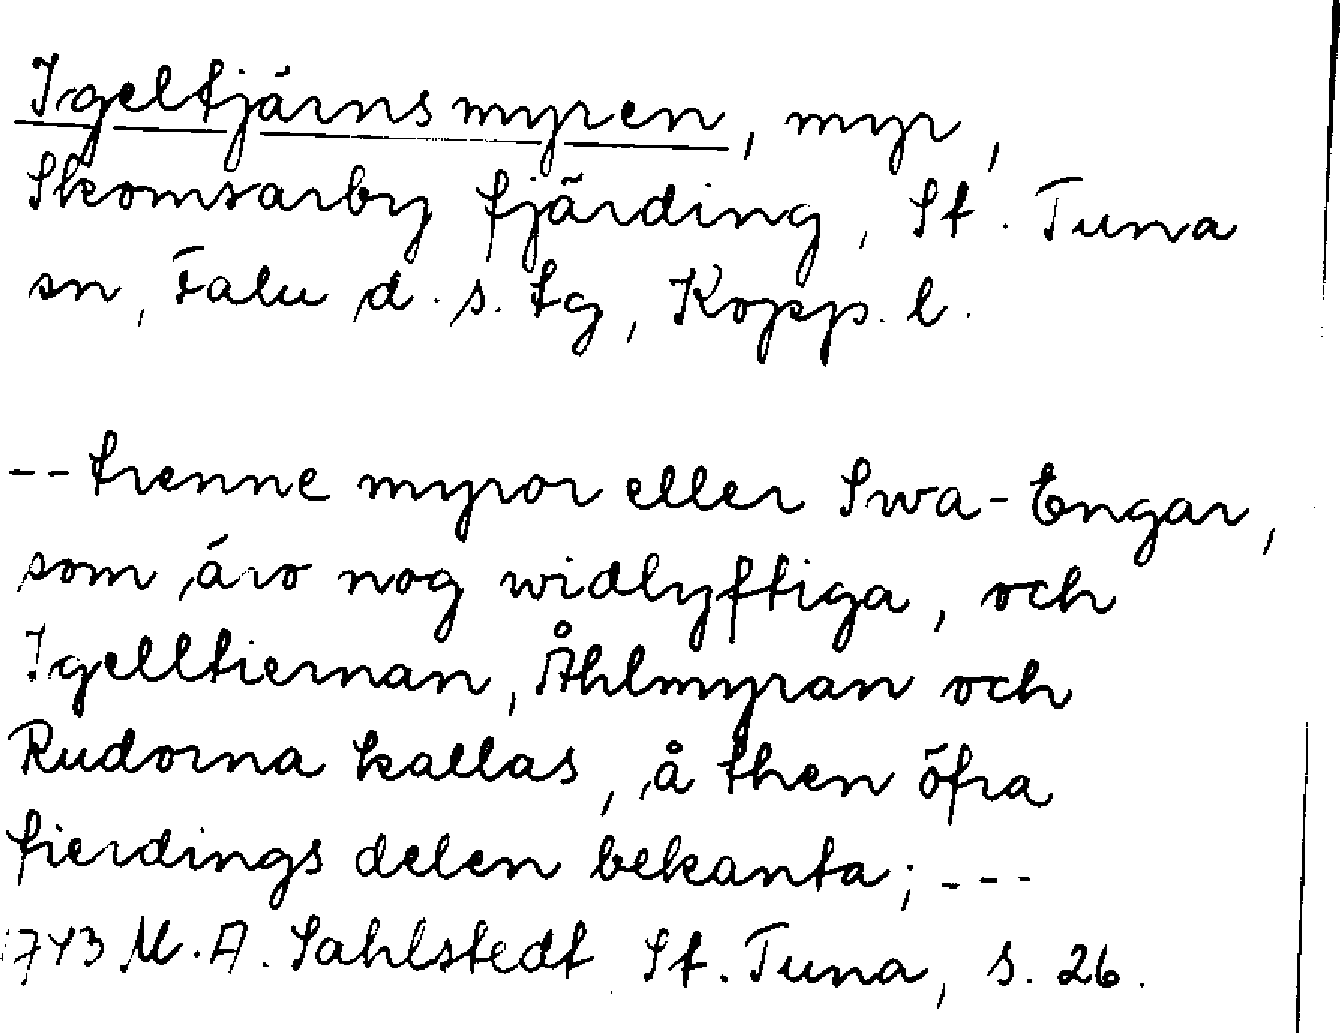 Igeltjärnsmyren, myr,
Skomsarby fjärding, St. Tuna
sn, Falu d. s. tg, Kopp. l.
-- trenne myror eller Swa-Engar,
som äro nog widlyftiga, och
Igelltiernan, Åhlmyran och
Rudorna kallas, å then öfra
fierdings delen bekanta; ---
1743 M. A. Sahlstedt St. Tuna, s. 26.